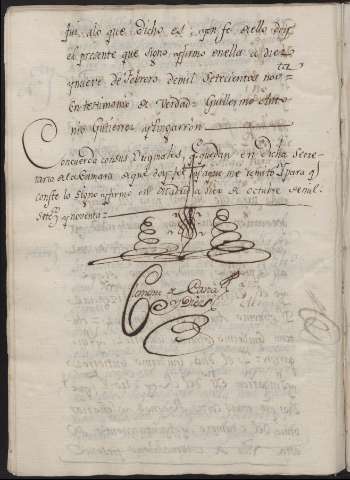 fui alo que dicho es, y en fe de ello doy
el presente que signo, y firmo en ella a diez
y nueve de febrero de mil setecientos nov.ta
En testimonio de Verdad = Guillermo Anto-
nio Gutierrez y Pingarron
Concuerda con sus Originales, q.e quedan en dicha Secre-
taria de la Camara de que doy fee y a que me remito. Y para q.e
conste lo signo y firmo en Madrid a diez de octubre de mil
sete.s y noventa =